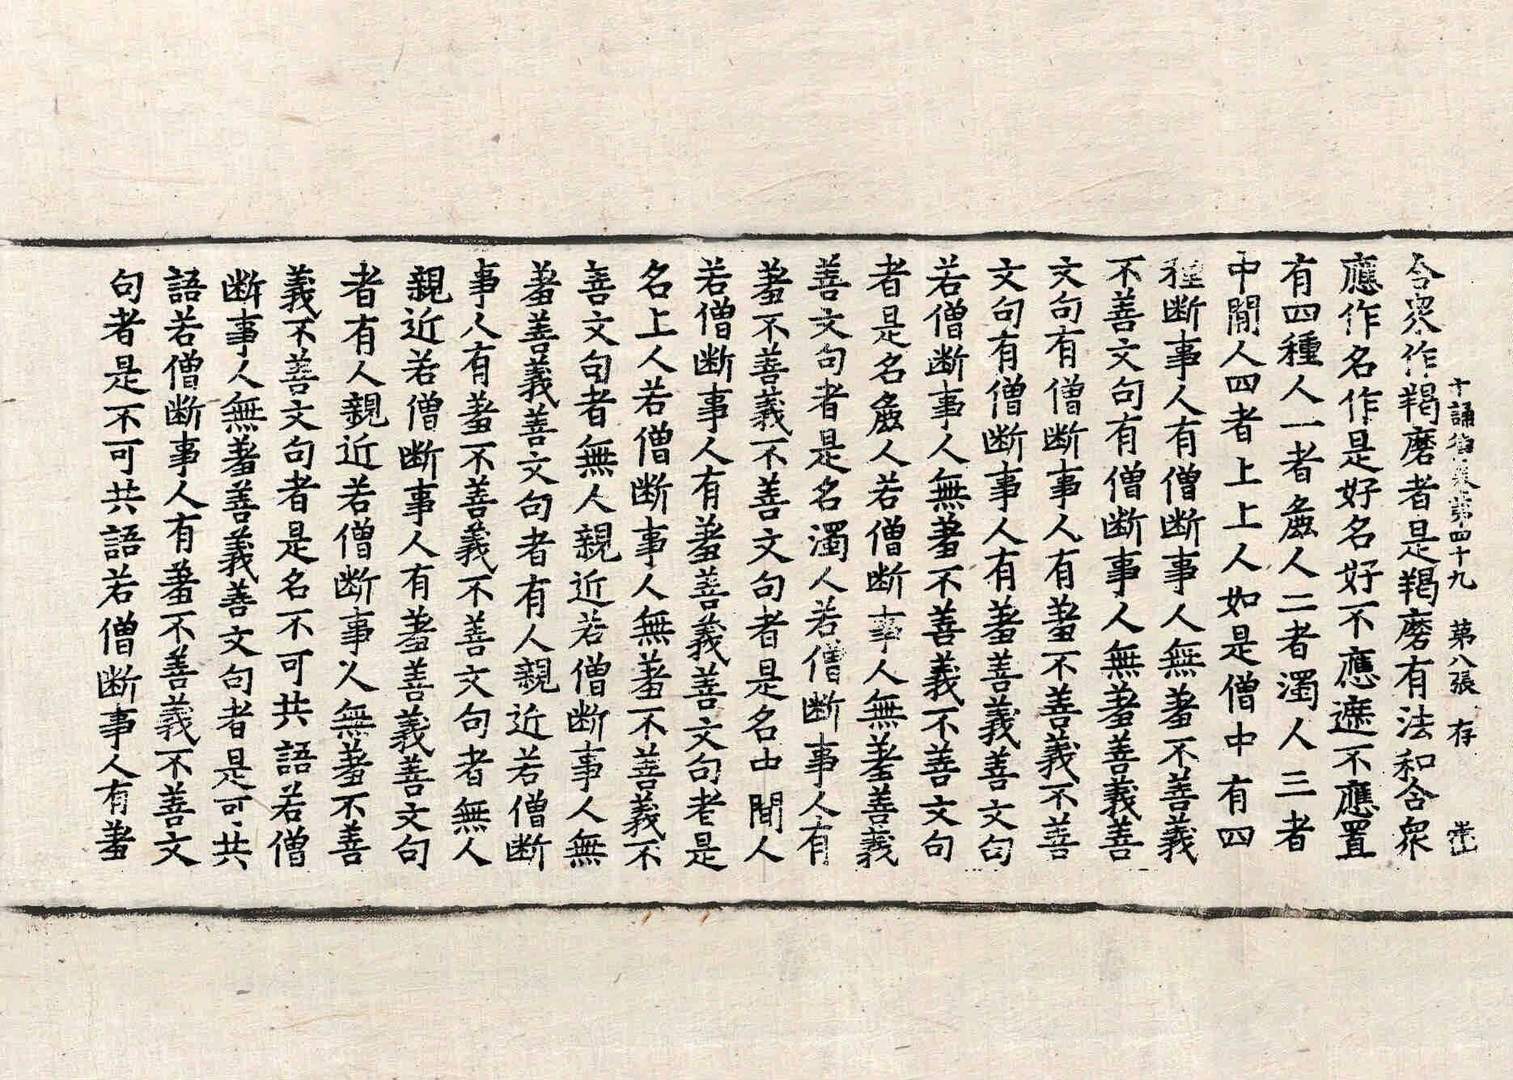 十誦律 第四十九 第八張 存
合衆作羯磨者是羯磨有法和合衆
應作名作是好名好不應遮不應置
有四種人一者麁人二者濁人三者
中閒人四者上上人如是僧中有四
種斷事人有僧斷事人無羞不善義
不善文句有僧斷事人無羞善義善
文句有僧斷事人有羞不善義不善
文句有僧斷事人有羞善義善文句
若僧斷事人無羞不善義不善文句
者是名麁人若僧斷事人無羞善義
善文句者是名濁人若僧斷事人有
羞不善義不善文句者是名中閒人
若僧斷事人有羞善義善文句者是
名上人若僧斷事人無羞不善義不
善文句者無人親近若僧斷事人無
羞善義善文句者有人親近若僧斷
事人有羞不善義不善文句者無人
親近若僧斷事人有羞善義善文句
者有人親近若僧斷事人無羞不善
義不善文句者是名不可共語若僧
斷事人無羞善義善文句者是可共
語若僧斷事人有羞不善義不善文
句者是不可共語若僧斷事人有羞